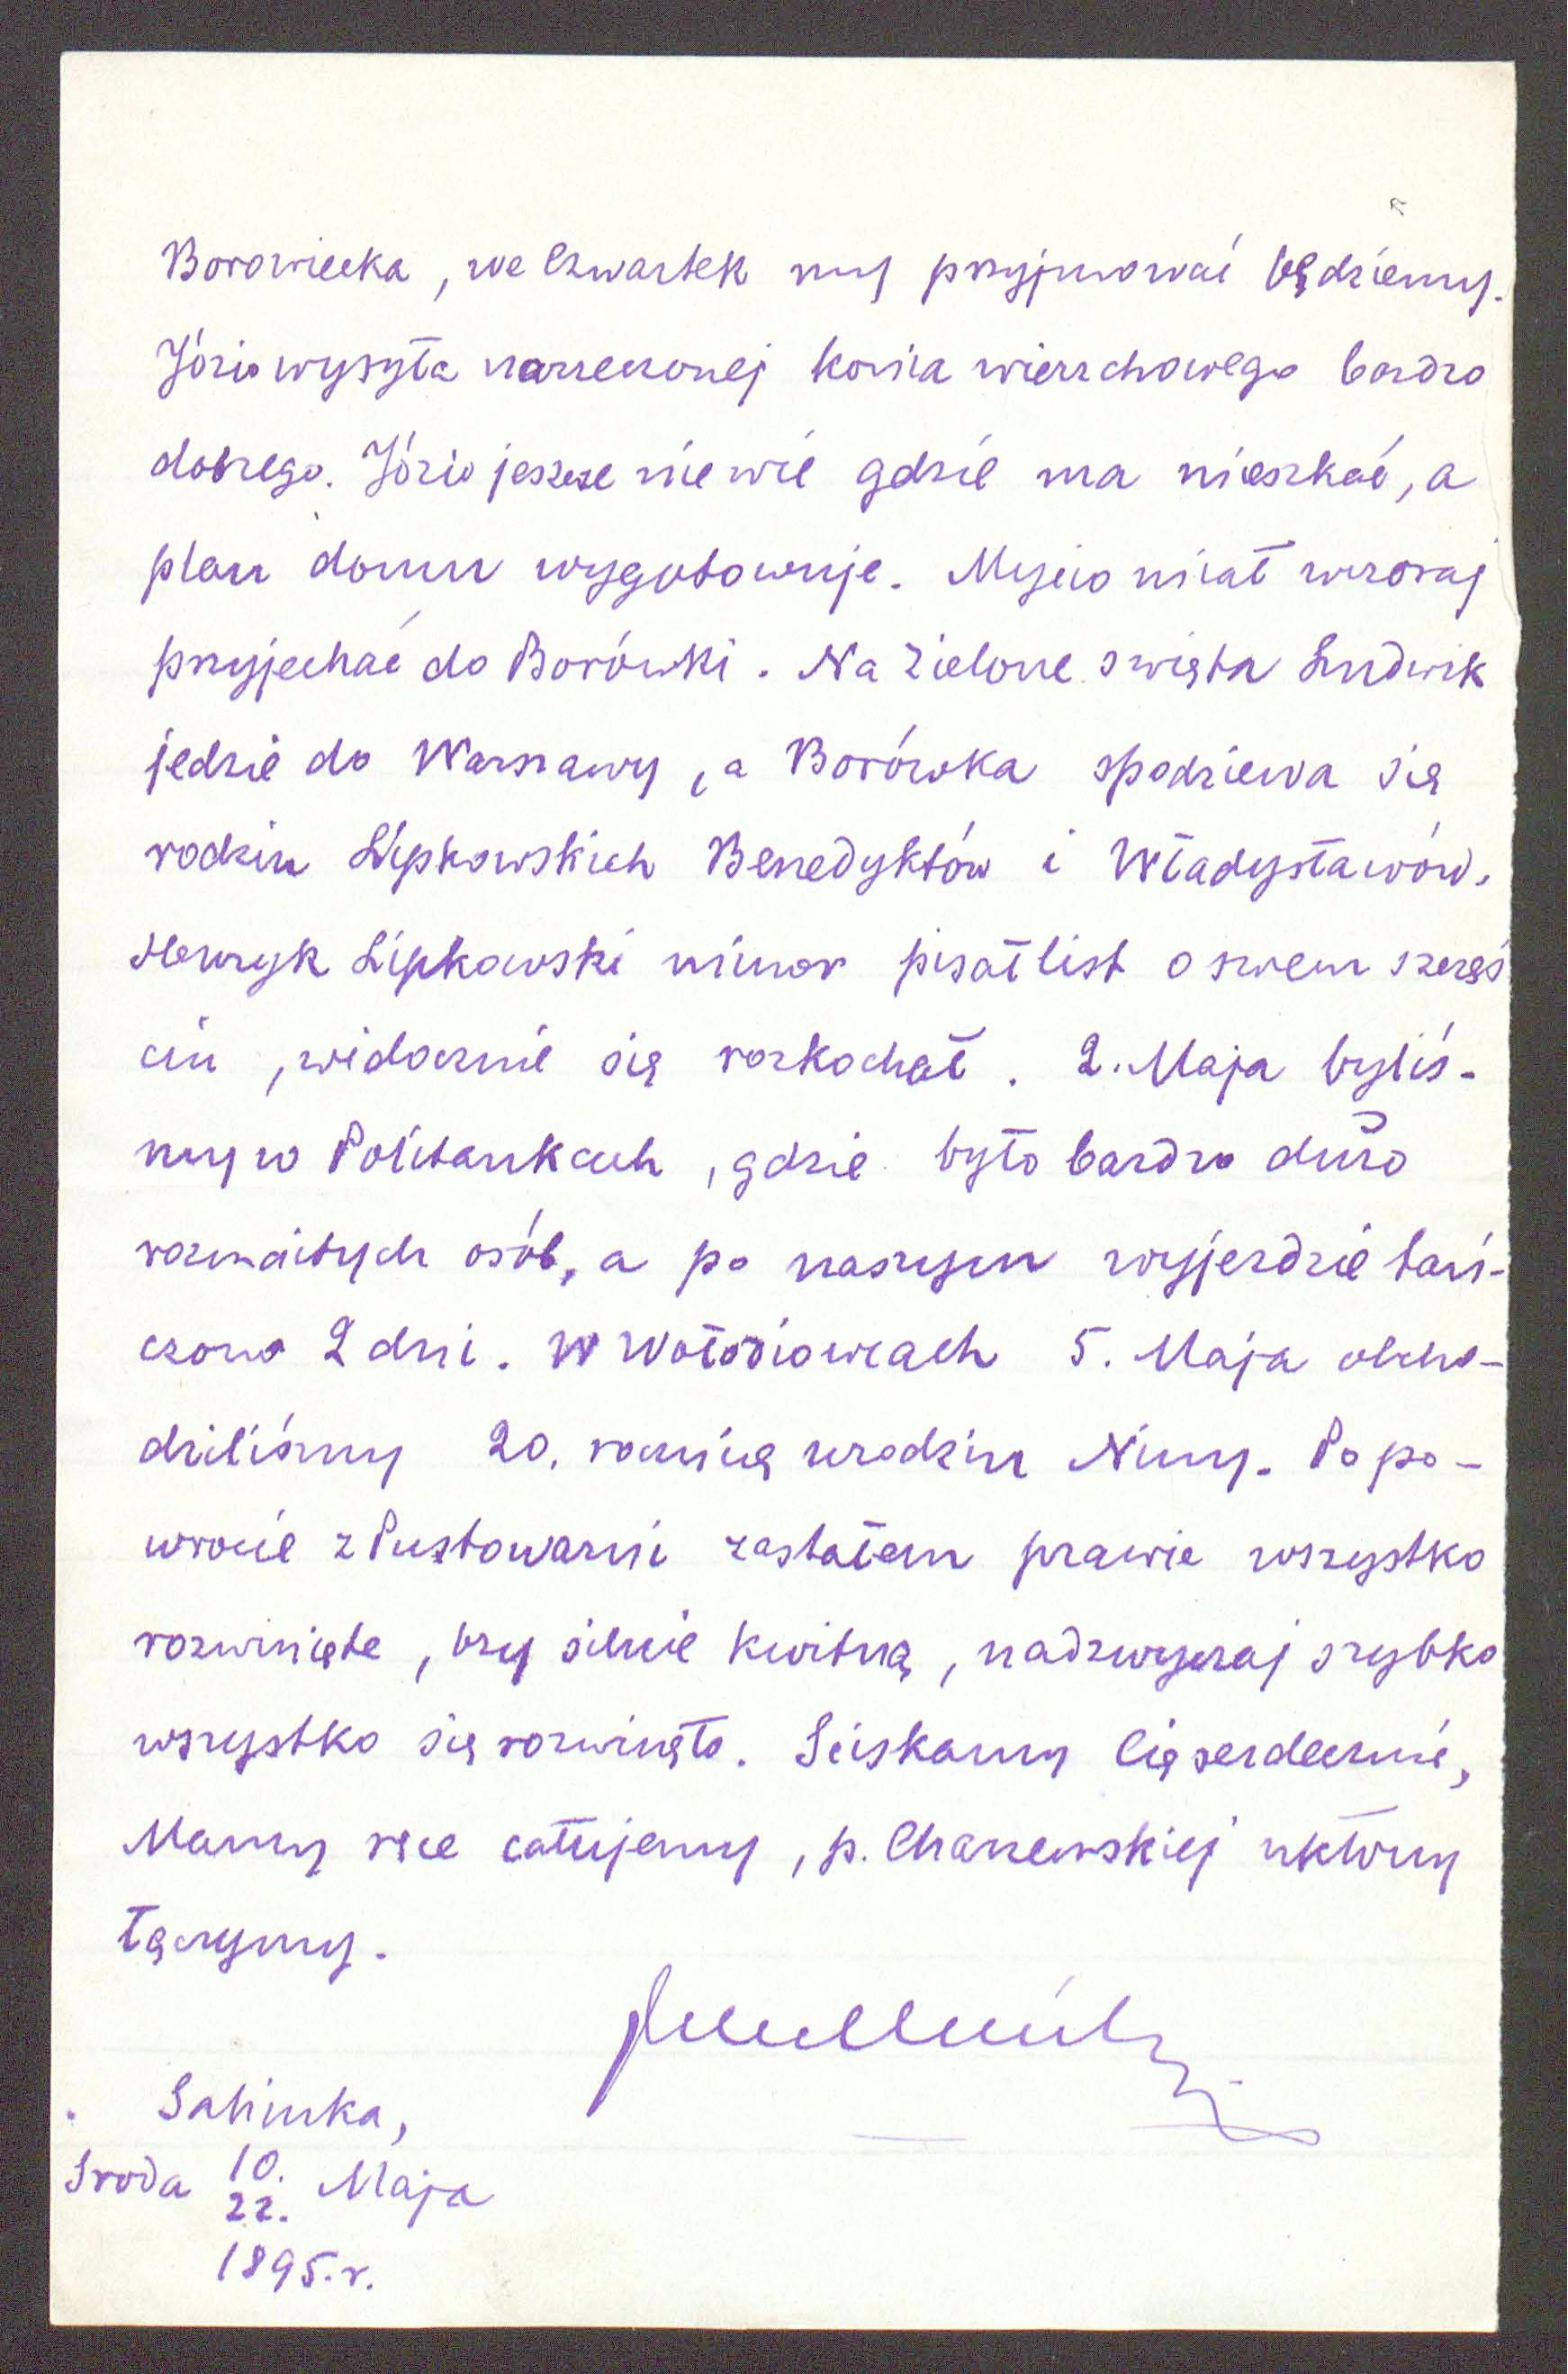 Borowiecka, we Czwartek my przyjmować będziemy.
Józio wysyła narzeczonej konia wierzchowego bardzo
dobrego. Józio jeszcze nie wie gdzie ma mieszkać, a
plan domu wygotowuje. Mycio miał wczoraj
przyjechać do Borówki. Na Zielone święta Ludwik
jedzie do Warszawy, a Borówka spodziewa się
rodzin Lipkowskich Benedyktów i Władysławów.
Henryk Lipkowski minor pisał list o swem szczęś
ciu, widocznie się rozkochał. 2. Maja byliś-
my w Politankach, gdzie było bardzo dużo
rozmaitych osób, a po naszym wyjeździe tań-
czono 2 dni. W Wołodiowcach 5. Maja obcho-
dziliśmy 20. rocznicę urodzin Niny. Po po-
wrocie z Pustowarni zastałem prawie wszystko
rozwinięte, bzy silnie kwitną, nadzwyczaj szybko
wszystko się rozwinęło. Ściskamy Cię serdecznie,
Mamy ręce całujemy, p. Charzewskiej ukłony
łączymy.
Sahinka,
Środa 10. Maja
22.
1895.r.